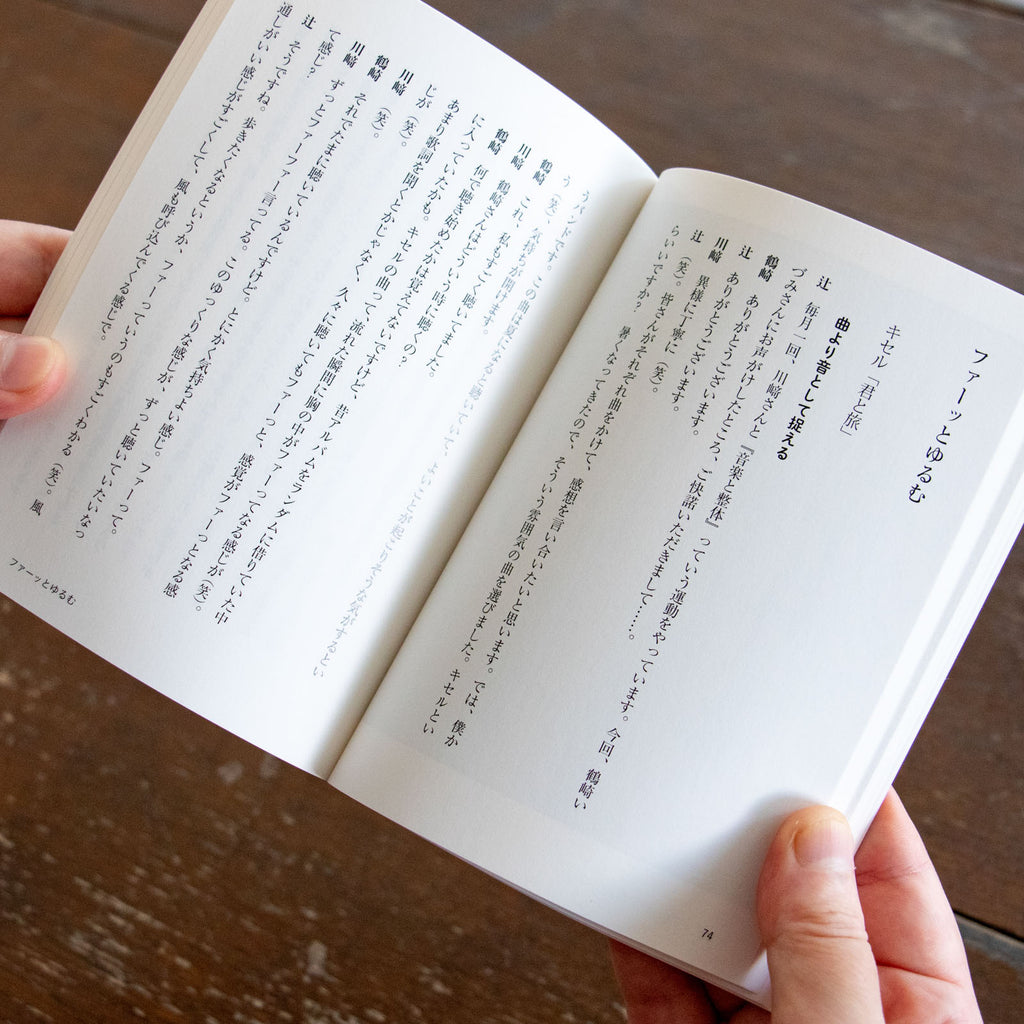 ファーッとゆるむ
キセル「君と旅」
曲より音として捉える
辻　毎月一回、川﨑さんと『音楽と整体』っていう運動をやっています。今回、鶴崎い
づみさんにお声がけしたところ、ご快諾いただきまして……。
鶴崎　ありがとうございます。
辻　ありがとうございます。
川﨑　異様に丁寧に（笑）。
辻　（笑）。皆さんがそれぞれ曲をかけて、感想を言い合いたいと思います。では、僕か
らいいですか？　暑くなってきたので、そういう雰囲気の曲を選びました。キセルとい
74
うバンドです。この曲は夏になると聴いていて、よいことが起こりそうな気がするとい
う（笑）、気持ちが開けます。
鶴崎　これ、私もすごく聴いてました。
川﨑　鶴崎さんはどういう時に聴くの？
鶴崎　何で聴き始めたかは覚えてないですけど、昔アルバムをランダムに借りていた中
に入っていたかも。キセルの曲って、流れた瞬間に胸の中がファーってなる感じが（笑）。
あまり歌詞を聞くとかじゃなく、久々に聴いてもファーっと、感覚がファーっとなる感
じが
川﨑　（笑）。
鶴崎　（笑）。
川﨑　それでたまに聴いているんですけど。とにかく気持ちよい感じ。ファーって。
て感じ？　ずっとファーファー言ってる。このゆっくりな感じが、ずっと聴いていたいなっ
辻　そうですね。歩きたくなるというか、ファーっていうのもすごくわかる（笑）。風
通しがいい感じがすごくして、風も呼び込んでくる感じで。
ファーッとゆるむ